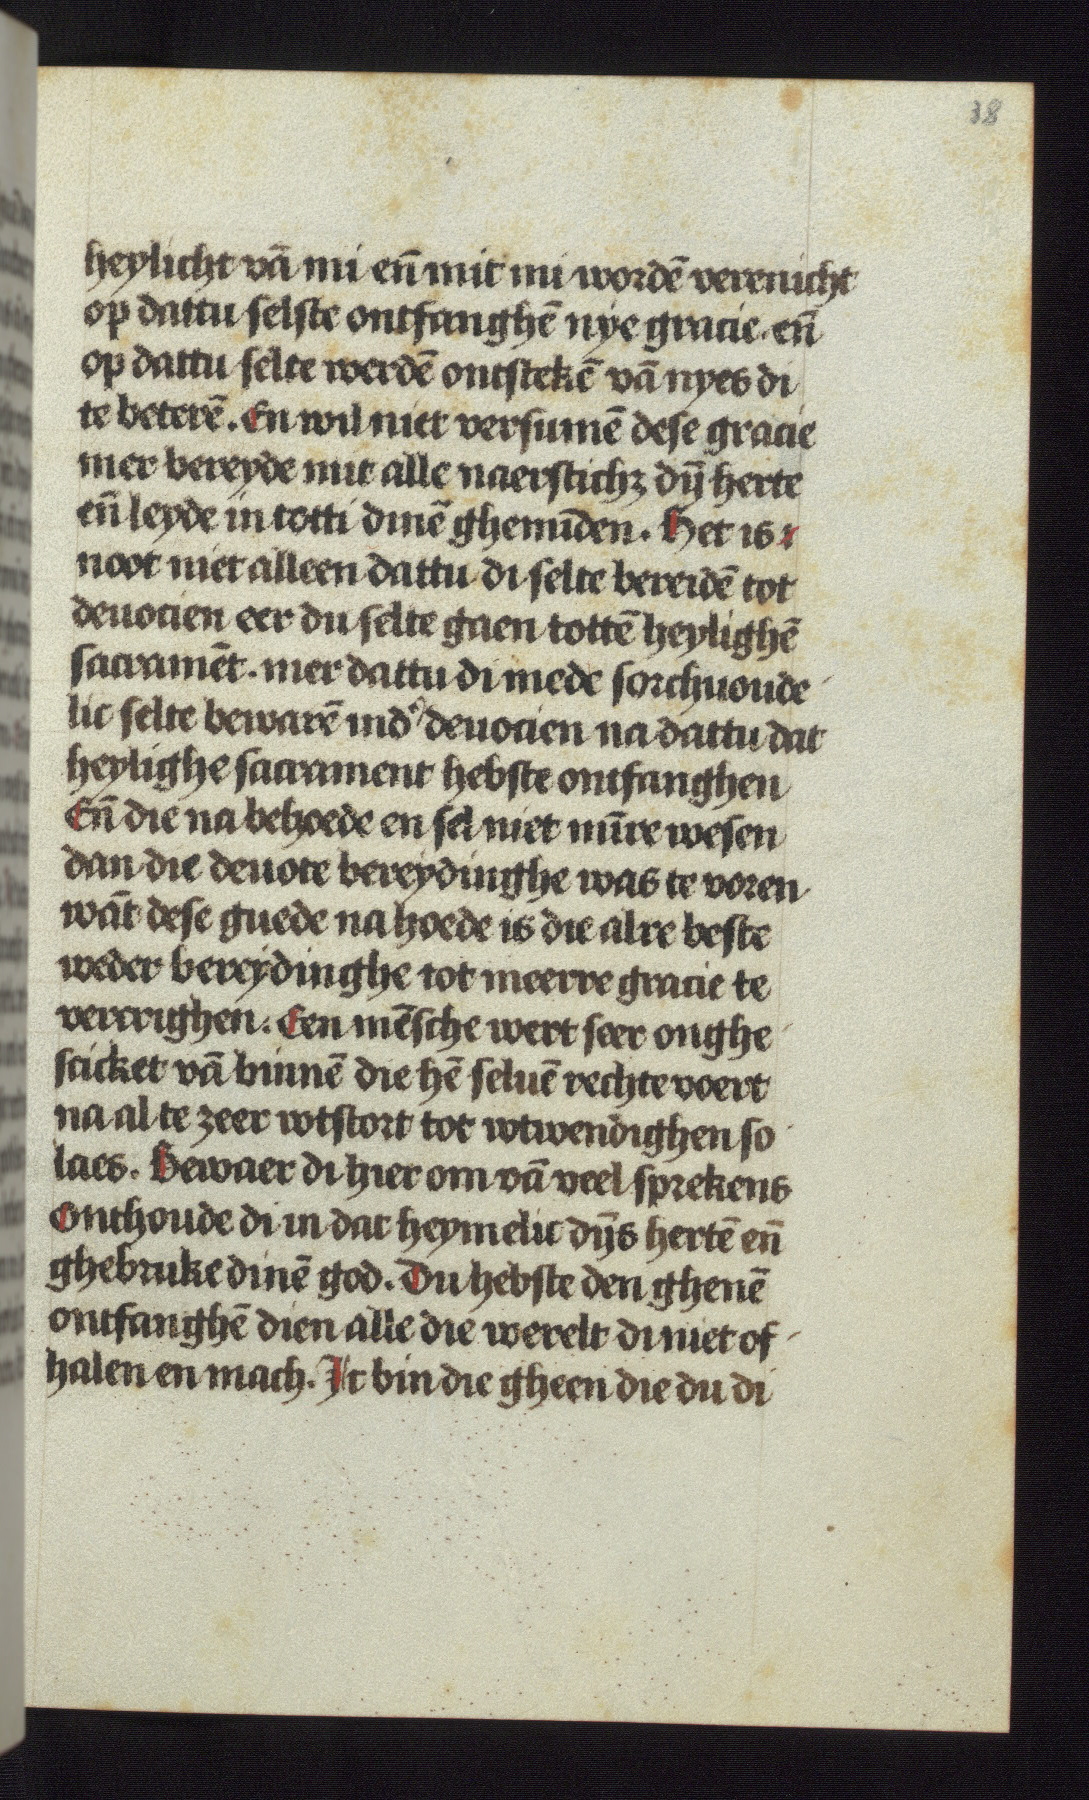 38
heylicht vā mi en̄ mit mi wordē verenicht
op dattu selste ontfanghē nye gracie. en̄
op dattu selte werdē ontstekē vā nyes di
te beterē. En wil niet versumē dese gracie
mer bereyde mit alle naerstichʒ dȳ herte
en̄ leyde in totti dinē ghemīden. Het is
noot niet alleen dattu di selte bereidē tot
deuocien eer du selte gaen tottē heylighē
sacramēt. mer dattu di mede sorchuoude
lic selte bewarē in dʾ deuocien na dattu dat
heylighe sacrament hebste ontfanghen
En̄ die na behoede en sel niet mīre wesen
dan die deuote bereydinghe was te voren
wāt dese guede na hoede is die alre beste
weder bereydinghe tot meerre gracie te
vercrighen. Een mēsche wert seer onghe
scicket vā binnē die hē seluē rechte voert
na al te zeer wtstort tot wtwendighen so
laes. Bewaer di hier om vā veel sprekens
Onthoude di in dat heymelic dȳs hertē en̄
ghebruke dinē god. Du hebste den ghenē
ontfanghē dien alle die werelt di niet of
halen en mach. Ic bin die gheen die du di